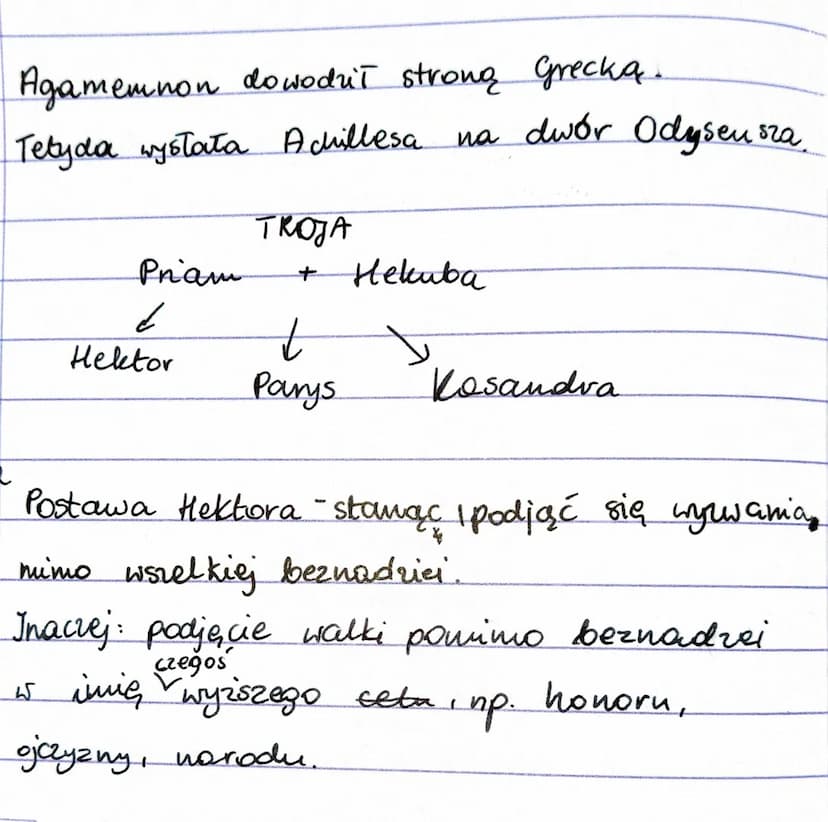 Agamemnon dowodził stroną Grecką.
Tetyda wysłała Achillesa na dwór Odyseusza.
TROJA
Priam + Hekuba
↙ ↓ ↘
Hektor Parys Kasandra
Postawa Hektora - stanąć, podjąć się wyzwania,
mimo wszelkiej beznadziei.
Inaczej: podjęcie walki pomimo beznadzei
czegoś
w imię wyższego celu, np. honoru,
ojczyzny, narodu.